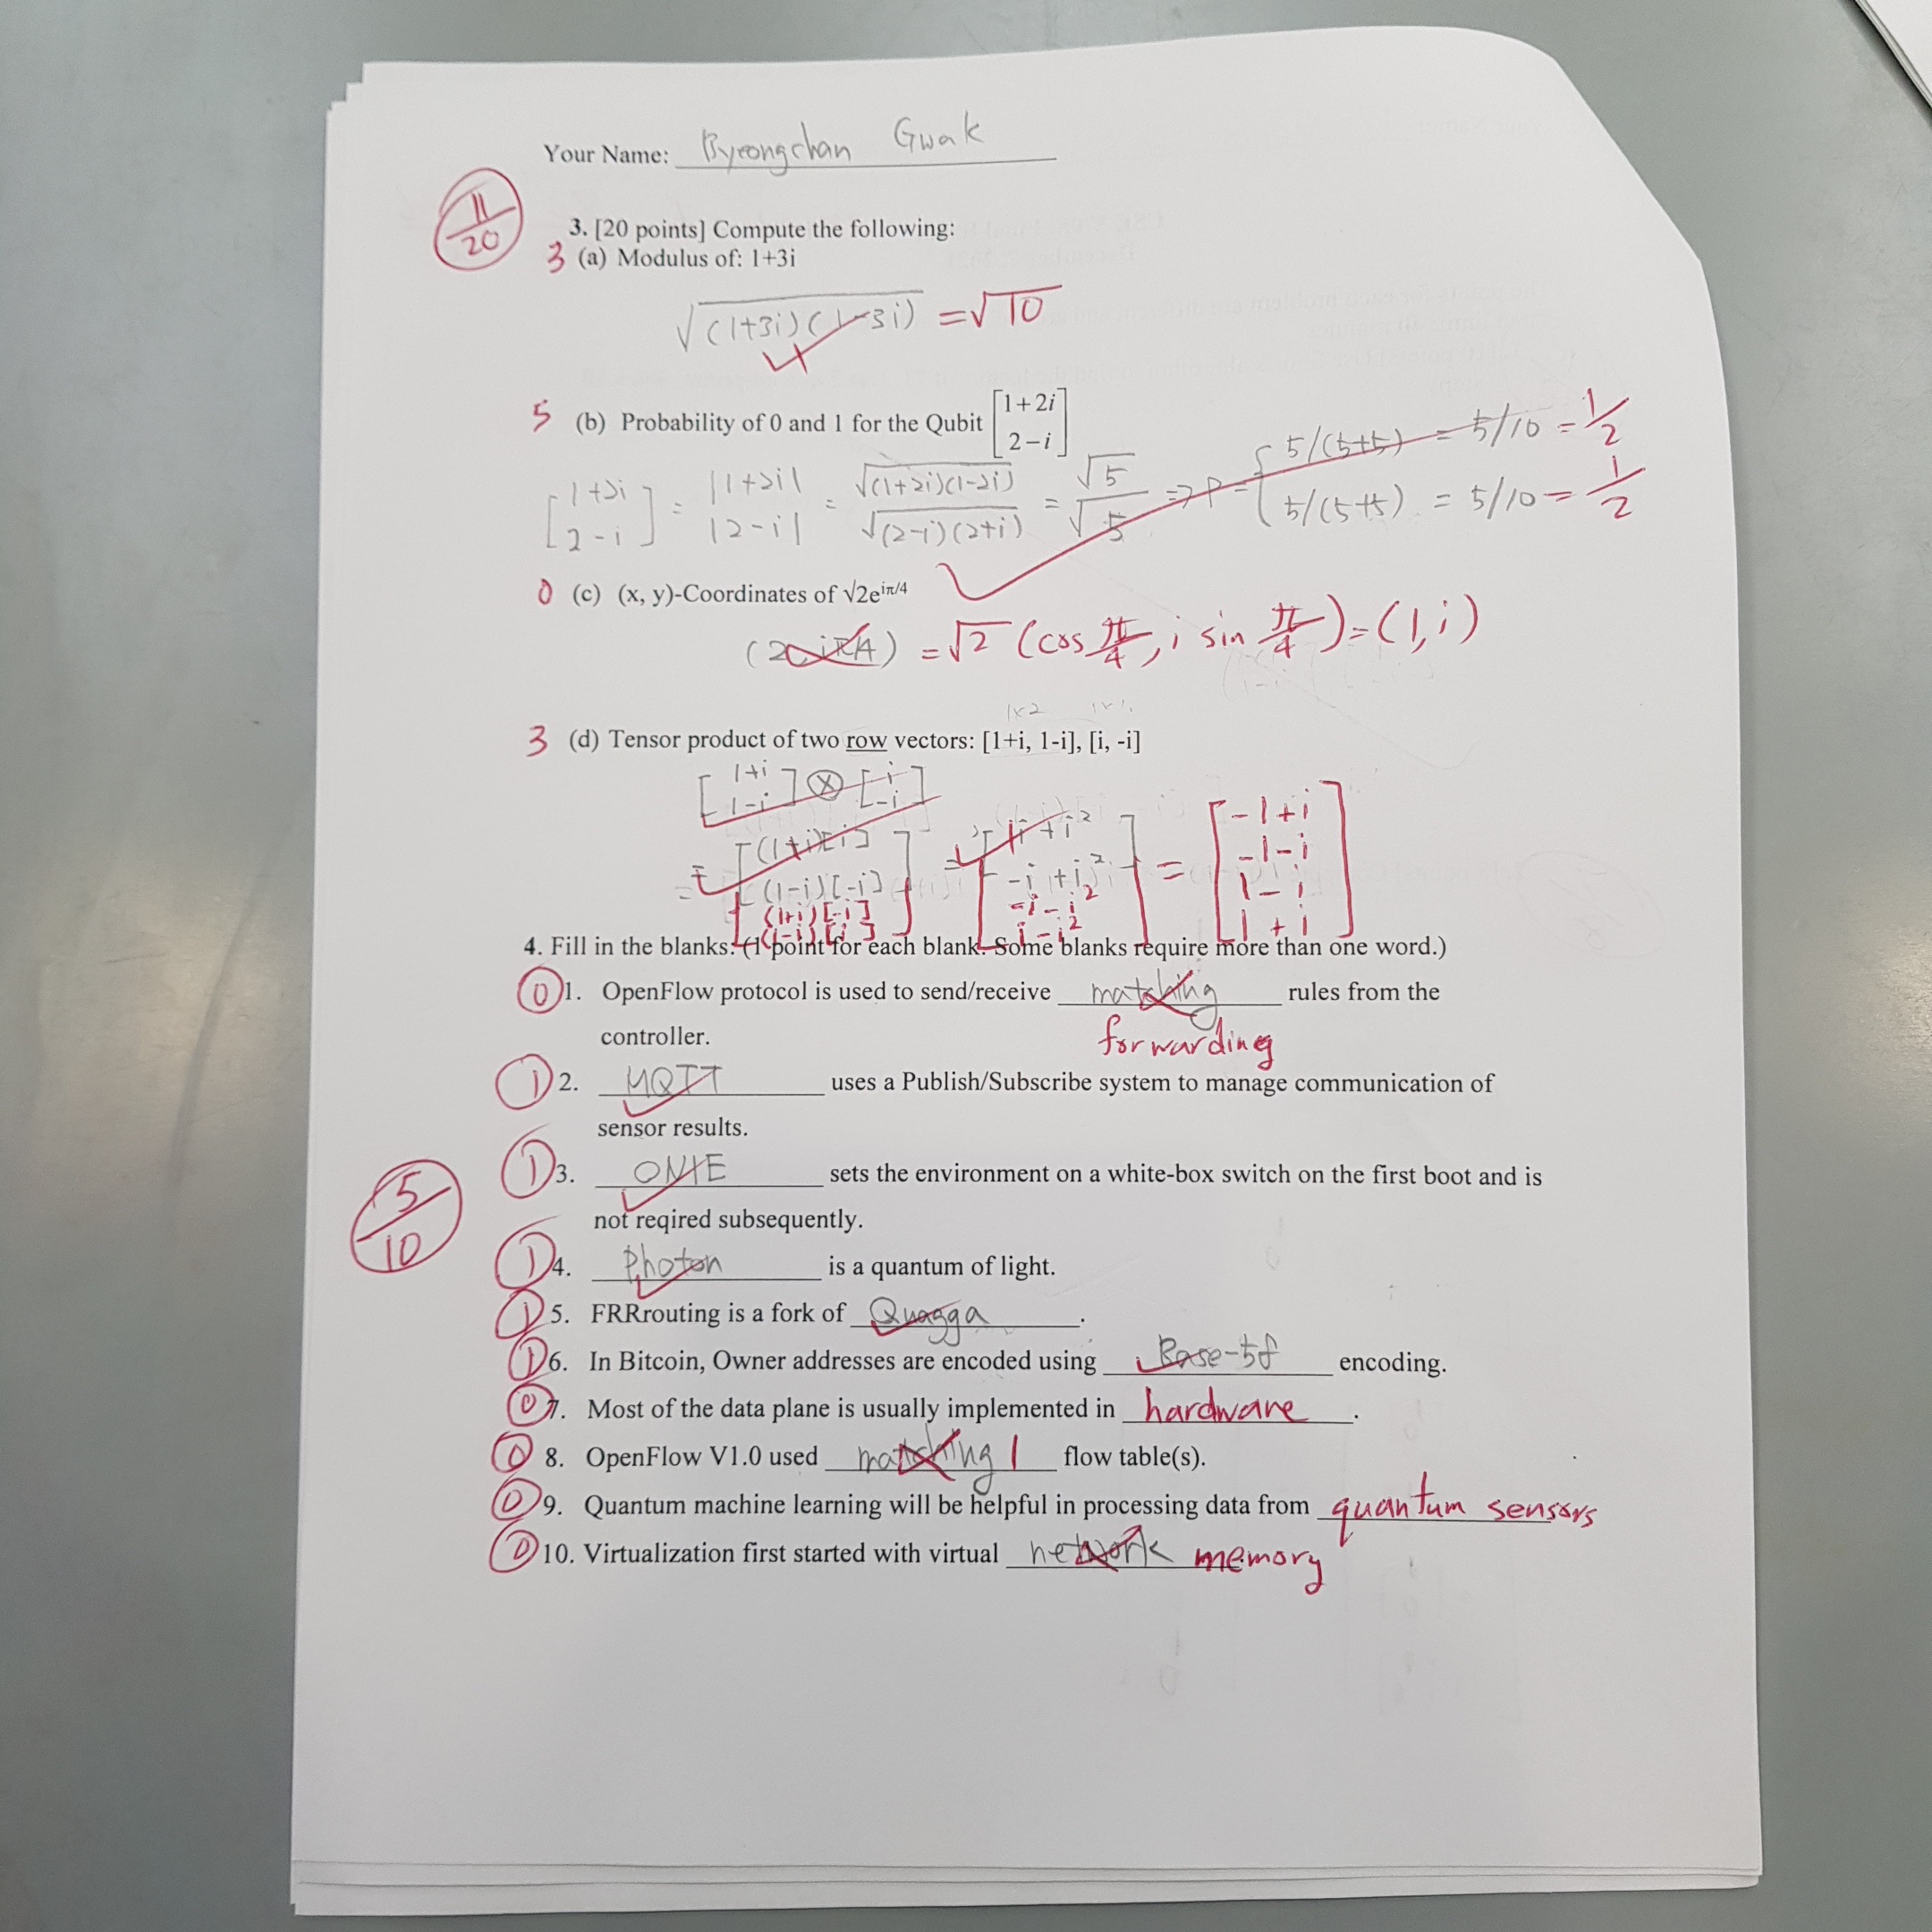 Your Name: Byeongchan Gwak
11/20
3. [20 points] Compute the following:
3 (a) Modulus of: 1+3i
√(1+3i)(1-3i) = √10
5 (b) Probability of 0 and 1 for the Qubit [1+2i 2-i]
[1+2i 2-i] = |1+2i| |2-i| = √(1+2i)(1-2i) √(2-i)(2+i) = √5 √5 => P = { 5/(5+5) = 5/10 = 1/2
5/(5+5) = 5/10 = 1/2
0 (c) (x, y)-Coordinates of √2e^iπ/4
= √2 (cos π/4, i sin π/4) = (1, i)
1x2
3 (d) Tensor product of two row vectors: [1+i, 1-i], [i, -i]
[1+i 1-i] ⊗ [i -i]
= [(1+i)[i] (1-i)[-i] (1+i)[-i] (1-i)[i]] = [i+i² -i+i² -i-i² i-i²] = [-1+i -1-i 1-i 1+i]
4. Fill in the blanks. (1 point for each blank. Some blanks require more than one word.)
0 1. OpenFlow protocol is used to send/receive matching rules from the
controller. forwarding
1 2. MQTT uses a Publish/Subscribe system to manage communication of
sensor results.
1 3. ONIE sets the environment on a white-box switch on the first boot and is
not reqired subsequently.
5/10
1 4. Photon is a quantum of light.
1 5. FRRrouting is a fork of Quagga.
1 6. In Bitcoin, Owner addresses are encoded using Base-58 encoding.
0 7. Most of the data plane is usually implemented in hardware.
0 8. OpenFlow V1.0 used matching 1 flow table(s).
0 9. Quantum machine learning will be helpful in processing data from quantum sensors
0 10. Virtualization first started with virtual network memory